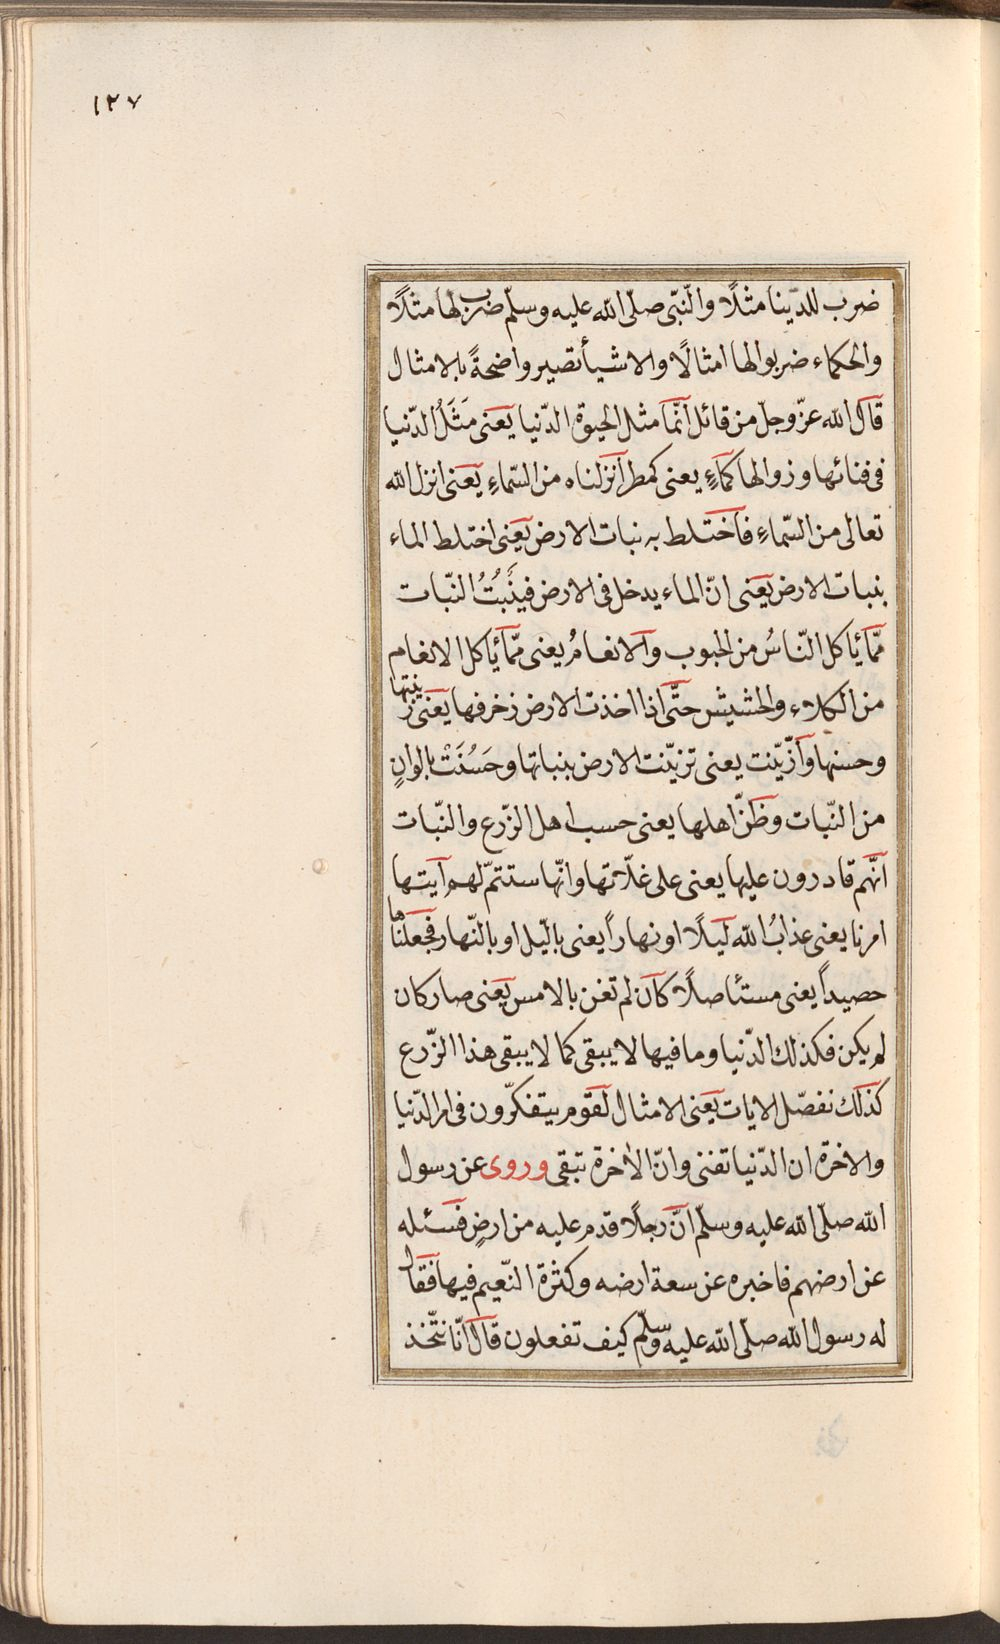 ١٢٧
ضرب للدّينا مثلًا والنّبّى صلّى الله عليه وسلّم ضرب لها مثلًا
والحكماء ضربوا لها امثالًا والاشيأ تصير واضحةً بالامثال
قال الله عزّ وجلّ من قائل انّما مثل الحيوة الدّنيا يعنى مَثَلُ الدّنيا
فى فنائها وزوالها كمآءٍ يعنى كمطر انزلناه من السّماءِ يعنى انزل الله
تعالى من السّماءِ فاختلط به نبات الارض يعنى اختلط الماء
بنبات الارض يعنى انّ الماء يدخل فى الارض فينَبُتُ النّبات
ممّا يأكل النّاسُ من الحبوب والانعامُ يعنى ممّا يأكل الانعام
من الكلاء والحشيش حتّى اذا اخذت الارض زخرفها يعنى زينتها
وحسنها وازّيّنت يعنى تزيّنت الارض بنباتها وحَسُنَتْ بالوانٍ
من النّبات وظنّ اهلها يعنى حسب اهل الزّرع والنّبات
انّهم قادرون عليها يعنى على غلّاتها وانّها ستتمّ لهم آيتها
امرنا يعنى عذابُ الله ليلًا او نهاراً يعنى بالّيل او بالنّهار فجعلناها
حصيداً يعنى مستأصلًا كان لم تغن بالامس يعنى صار كان
لم يكن فكذلك الدّنيا وما فيها لا يبقى كما لا يبقى هذا الزّرع
كذلك نفصّل الايات يعنى الامثال لقوم يتفكّرون فى امر الدّنيا
والاخرة ان الدّنيا تفنى وانّ الاخرة تبقى وروى عن رسول
الله صلّى الله عليه وسلّم انّ رجلًا قدم عليه من ارضٍ فسئله
عن ارضهم فاخبره عن سعة ارضه وكثرة النّعيم فيها فقال
له رسول الله صلّى الله عليه وسلّم كيف تفعلون قال انّا نتّخذ